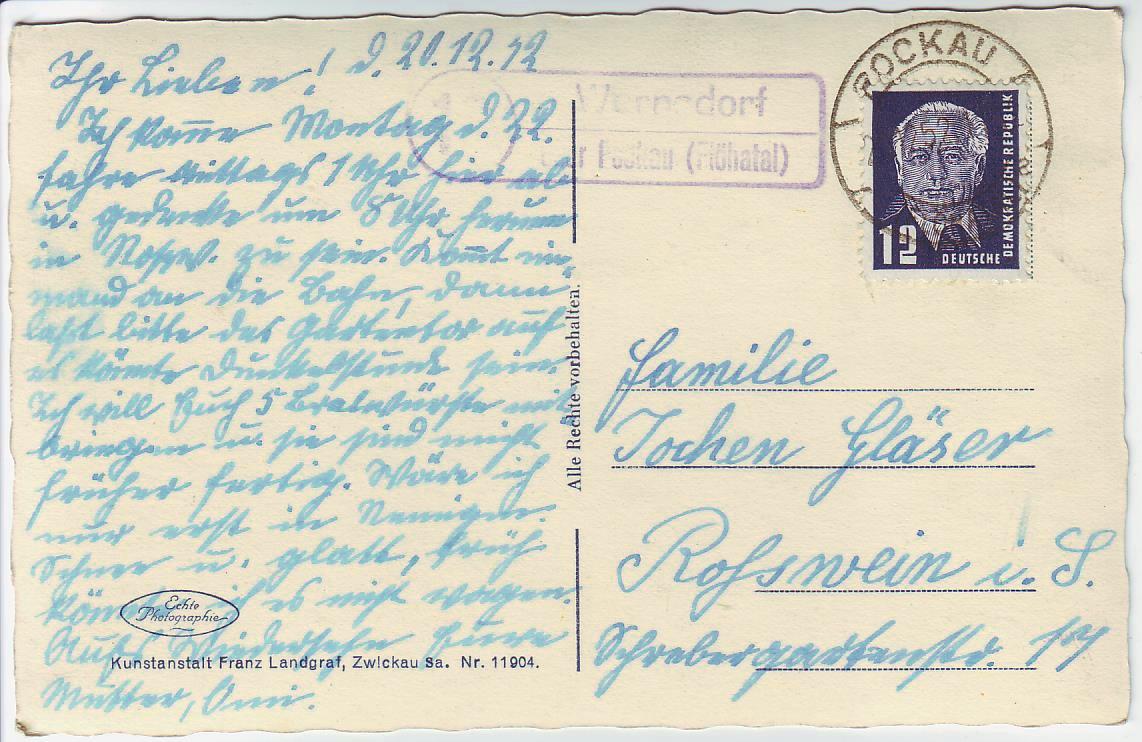 Ihr Lieben! d. 20.12.52
Ich komme Montag d. 22.
fahre mittags 1 Uhr hier ab
u. gedenke um 8 Uhr herum
in Rossw. zu sein. Kommt nie-
mand an die Bahn, dann
laßt bitte das Gartentor auf
es könnte Dunkelstunde sein.
Ich will Euch 5 Bratwürste mit
bringen u. sie sind nicht
früher fertig. Wäre ich
nur erst in
Schnee u. glatt, früh
könnte ich es nicht wagen.
Aufs Wiedersehn Eure
Mutter, Omi.
Echte
Photographie
Kunstanstalt Franz Landgraf, Zwickau Sa. Nr. 11904.
Alle Rechte vorbehalten.
Wernsdorf
über Pockau (Flöhatal)
POCKAU
12
DEUTSCHE
DEMOKRATISCHE REPUBLIK
Familie
Jochen Gläser
Roßwein i. S.
Schrebergartenstr. 17